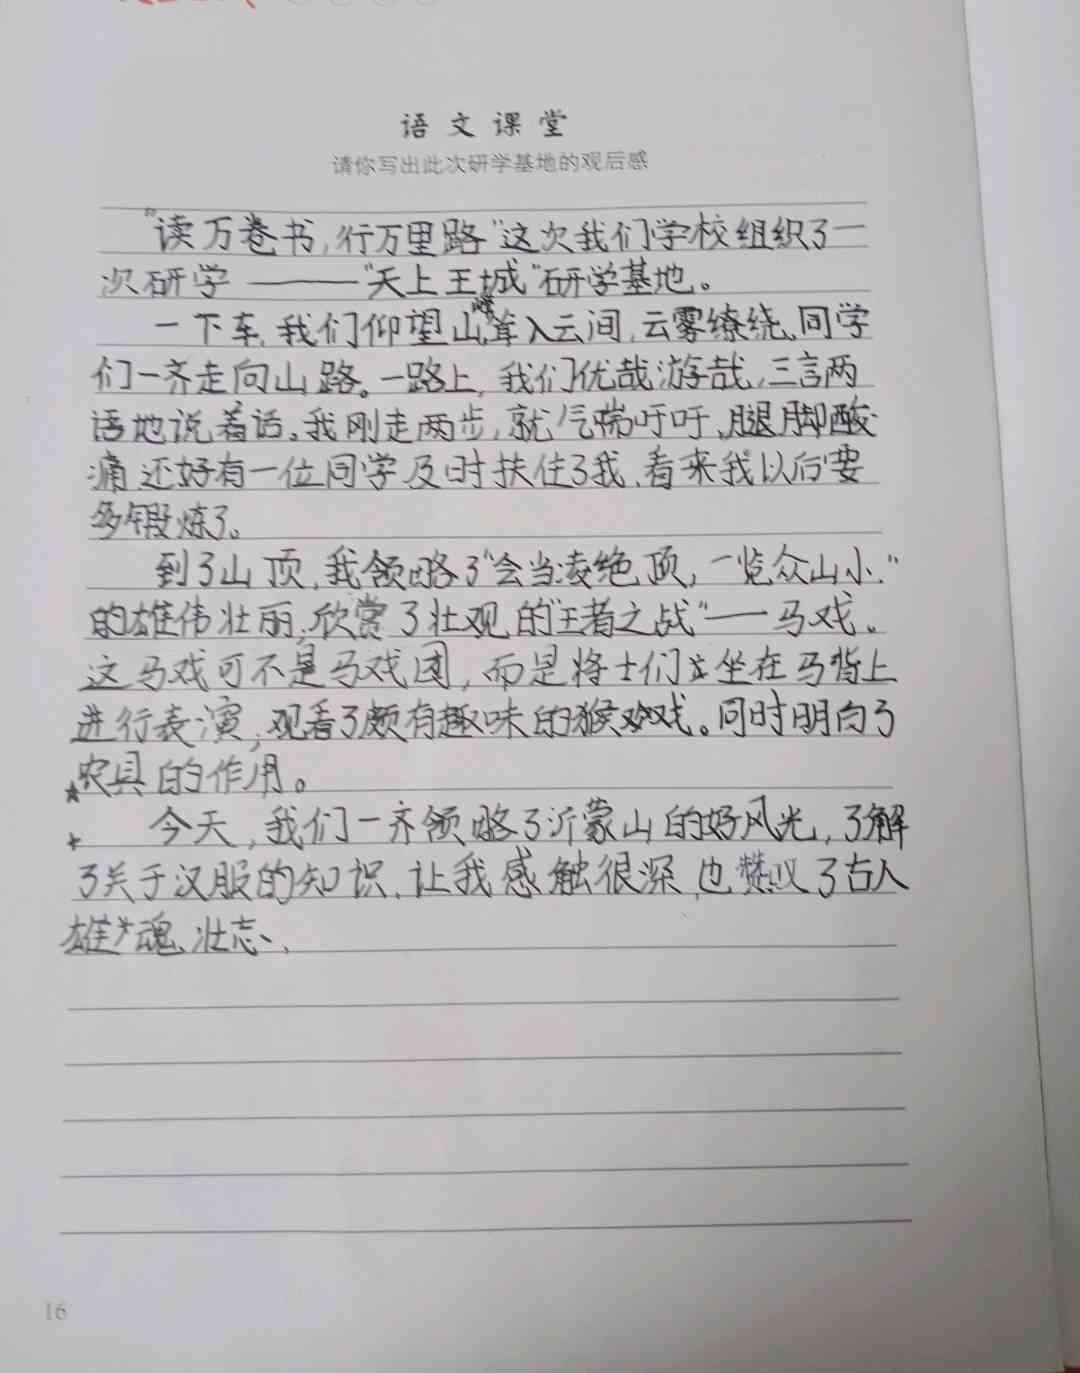 语文课堂
请你写出此次研学基地的观后感
"读万卷书,行万里路"这次我们学校组织了一
次研学——"天上王城"研学基地。
一下车,我们仰望山峰耸入云间,云雾缭绕、同学
们一齐走向山路。一路上,我们优哉游哉,三言两
语地说着话。我刚走两步,就气喘吁吁、腿脚酸
痛还好有一位同学及时扶住了我、看来我以后要
多锻炼了。
到了山顶,我领略了"会当凌绝顶,一览众山小."
的雄伟壮丽,欣赏了壮观的"王者之战"——马戏。
这马戏可不是马戏团,而是将士们坐在马背上
进行表演,观看了颇有趣味的猴戏。同时明白了
农具的作用。
今天,我们一齐领略了沂蒙山的好风光,了解
了关于汉服的知识,让我感触很深,也赞叹了古人
雄魂、壮志、
16